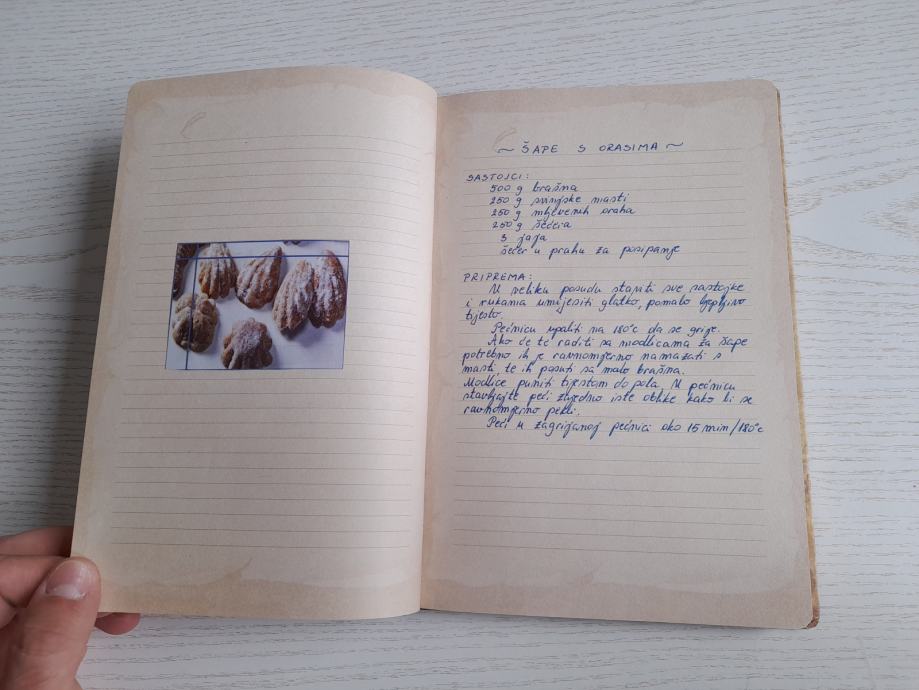 ~ ŠAPE S ORASIMA ~
SASTOJCI:
500 g brašna
250 g svinjske masti
250 g mljevenih oraha
250 g šećera
3 jaja
šećer u prahu za posipanje
PRIPREMA:
U veliku posudu staviti sve sastojke
i rukama umijesiti glatko, pomalo ljepljivo
tijesto.
Pećnicu upaliti na 180°C da se grije.
Ako će te raditi sa modlicama za šape
potrebno ih je ravnomjerno namazati s
masti, te ih posuti sa malo brašna.
Modlice puniti tijestom do pola. U pećnicu
stavljajte peći zajedno iste oblike kako bi se
ravnomjerno pekli.
Peći u zagrijanoj pećnici oko 15 min/180°C